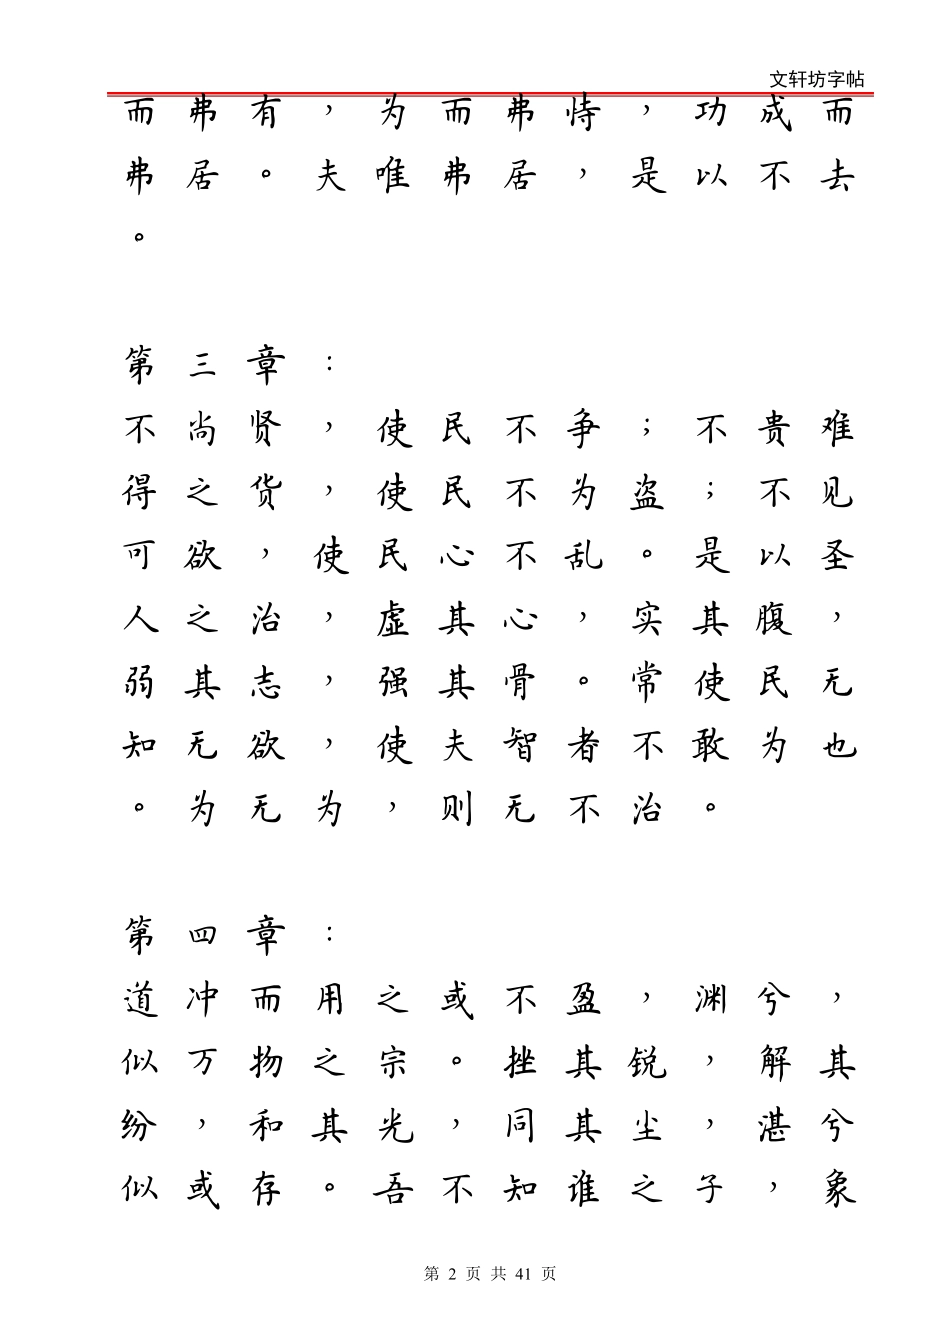 文轩坊字帖
而弗有，为而弗恃，功成而
弗居。夫唯弗居，是以不去
。
第三章：
不尚贤，使民不争；不贵难
得之货，使民不为盗；不见
可欲，使民心不乱。是以圣
人之治，虚其心，实其腹，
弱其志，强其骨。常使民无
知无欲，使夫智者不敢为也
。为无为，则无不治。
第四章：
道冲而用之或不盈，渊兮，
似万物之宗。挫其锐，解其
纷，和其光，同其尘，湛兮
似或存。吾不知谁之子，象
第 2 页 共 41 页